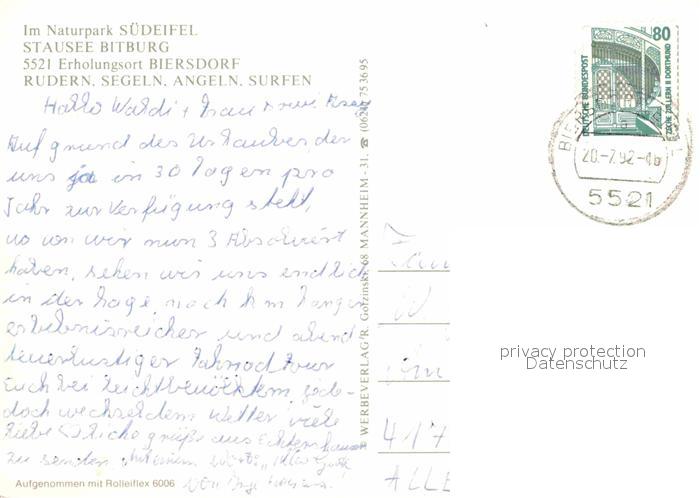 Im Naturpark SÜDEIFEL
STAUSEE BITBURG
5521 Erholungsort BIERSDORF
RUDERN, SEGELN, ANGELN, SURFEN
Hallo Waldi + Frau
Aufgrund des Urlaubes der
uns ja in 30 Tagen pro
Jahr zur Verfügung steht,
wo von wir nun 3 Absolviert
haben, sehen wir uns endlich
in der Lage nach
erlebnisreicher und abend
teuerlustiger Fahrrad Tour
Euch bei leicht bewölktem, je
doch wechselndem Wetter viele
liebe Grüße aus
zu senden.
Aufgenommen mit Rolleiflex 6006
WERBEVERLAG/R. Gotzinski · 68 MANNHEIM - 31, ☎ (0621) 75 36 95
DEUTSCHE BUNDESPOST
80
ZECHE ZOLLERN II DORTMUND
20.-7.92-
5521
417
ALLE
privacy protection
Datenschutz